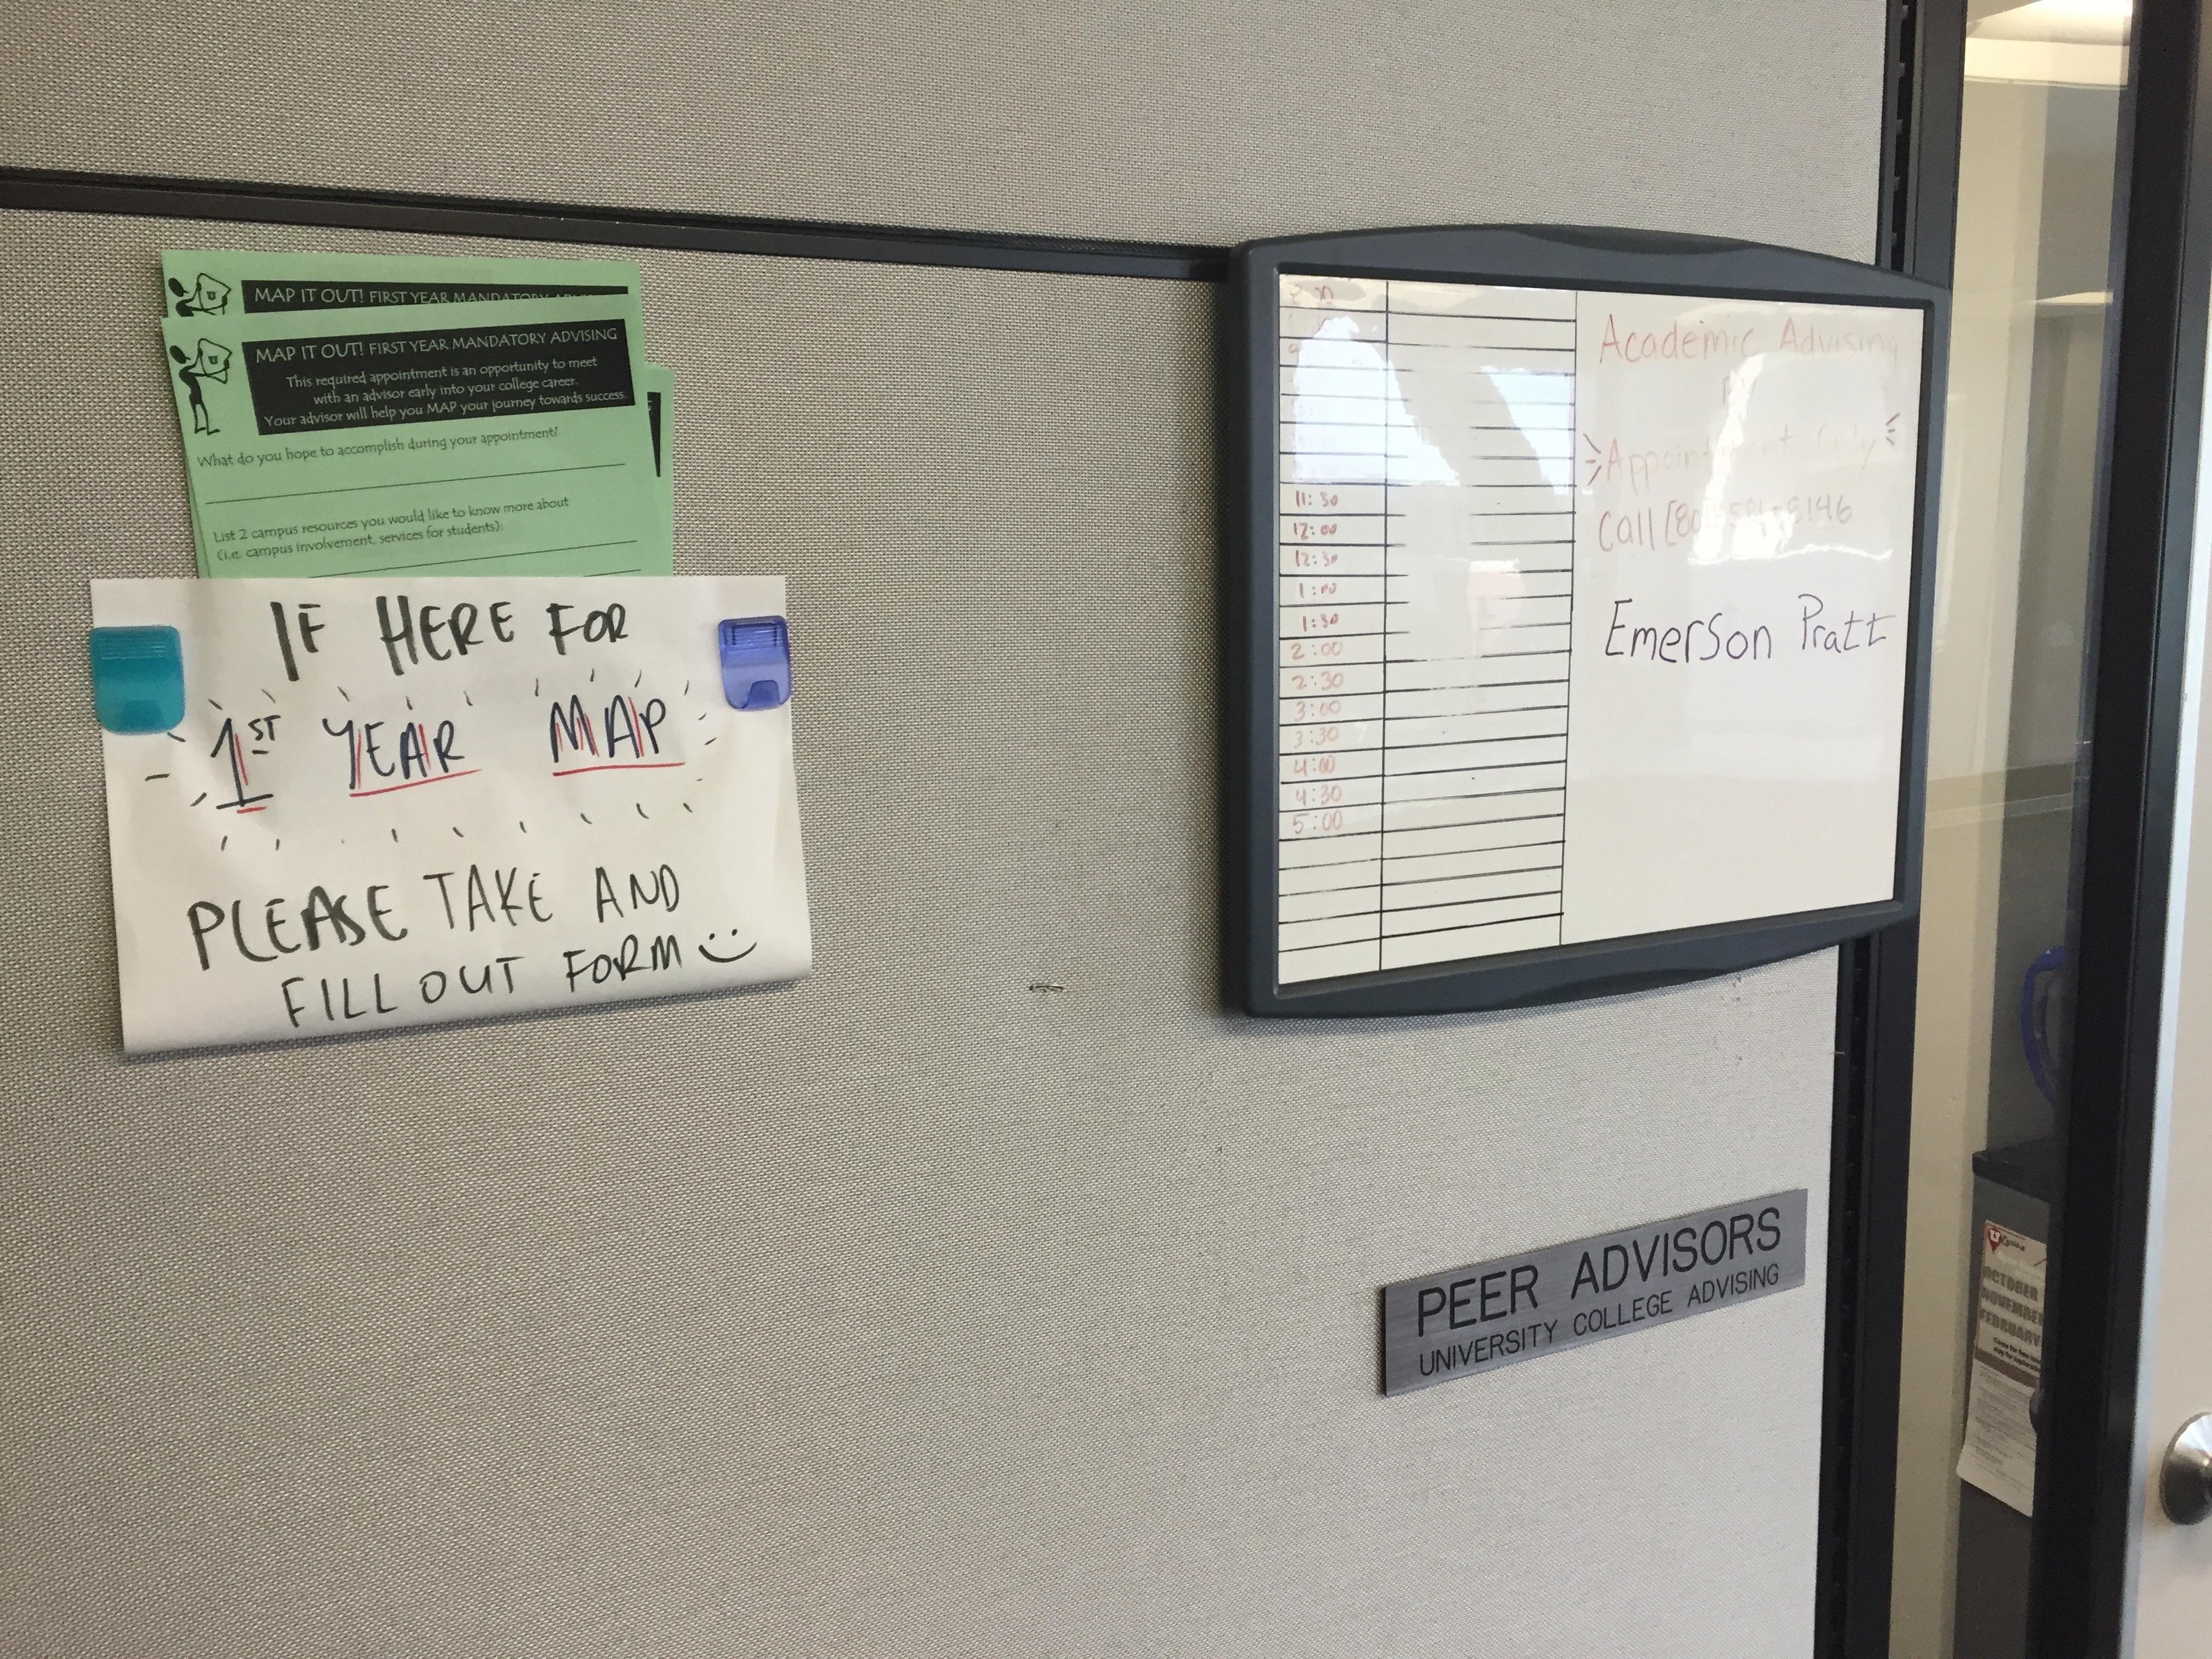 MAP IT OUT! FIRST YEAR MANDATORY
MAP IT OUT! FIRST YEAR MANDATORY ADVISING
This required appointment is an opportunity to meet
with an advisor early into your college career.
Your advisor will help you MAP your journey towards success.
What do you hope to accomplish during your appointment?
List 2 campus resources you would like to know more about
(i.e. campus involvement, services for students):
IF HERE FOR
1ST YEAR MAP
PLEASE TAKE AND
FILL OUT FORM
11:30
12:00
12:30
1:00
1:30
2:00
2:30
3:00
3:30
4:00
4:30
5:00
Academic Advising
Appointment Only
Call
Emerson Pratt
PEER ADVISORS
UNIVERSITY COLLEGE ADVISING
OCTOBER
NOVEMBER
FEBRUARY